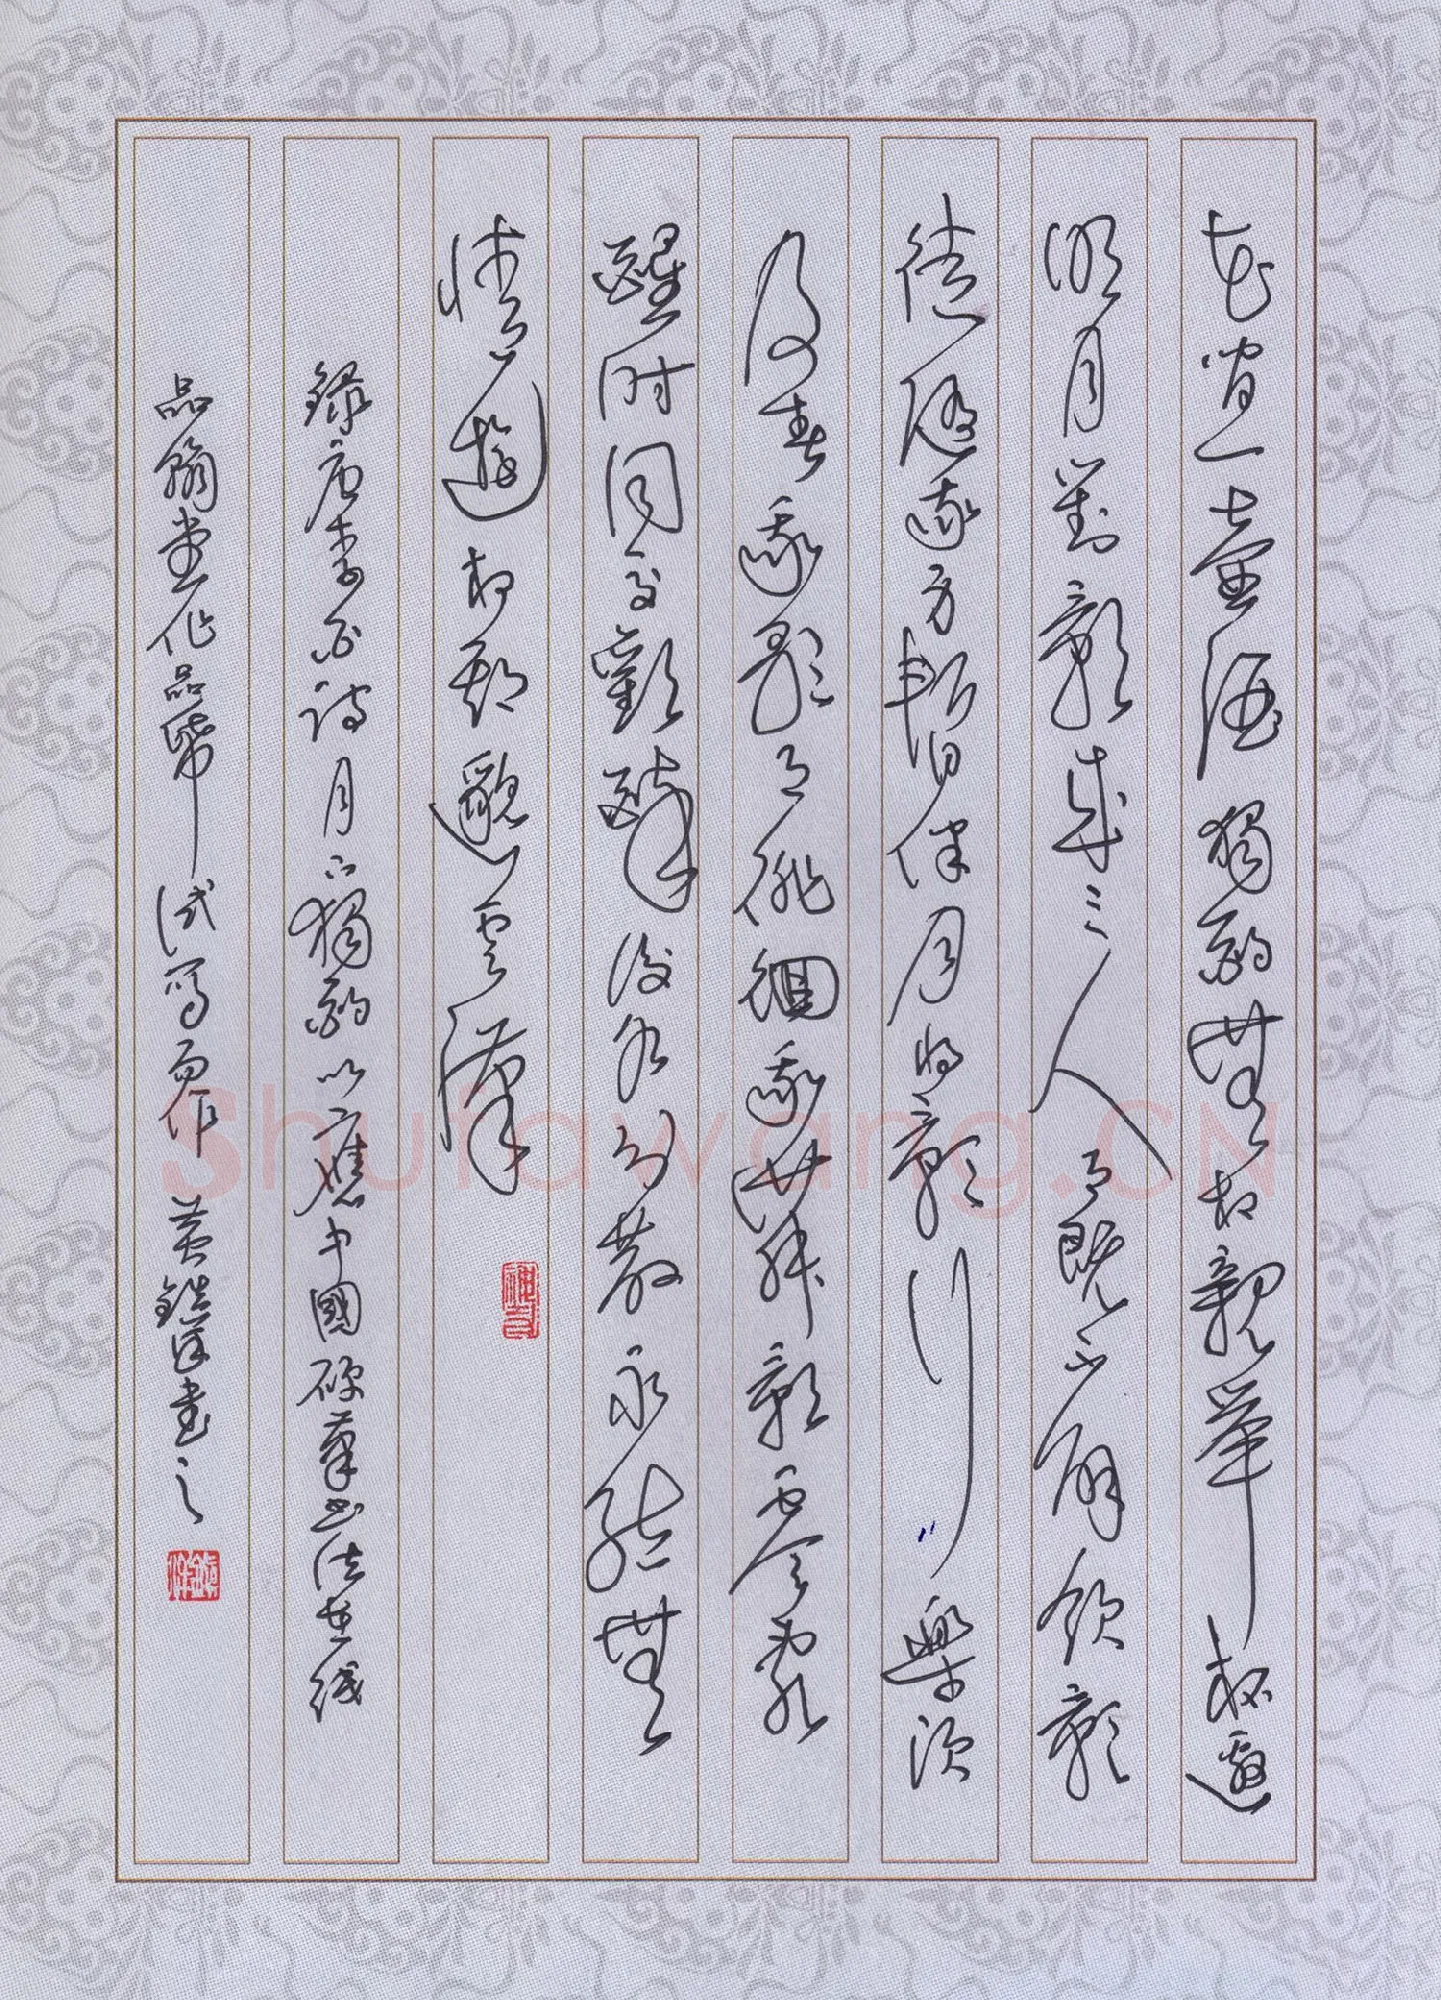 花間一壺酒獨酌無相親舉杯邀
明月對影成三人月既不解飲影
徒隨我身暫伴月將影行樂須
及春我歌月徘徊我舞影零亂
醒時同交歡醉後各分散永結無
情遊相期邈雲漢
錄唐李白詩月下獨酌以應中國硬筆書法在线
品翰堂作品帋試寫而作 黃洋書之
Shufawang.CN